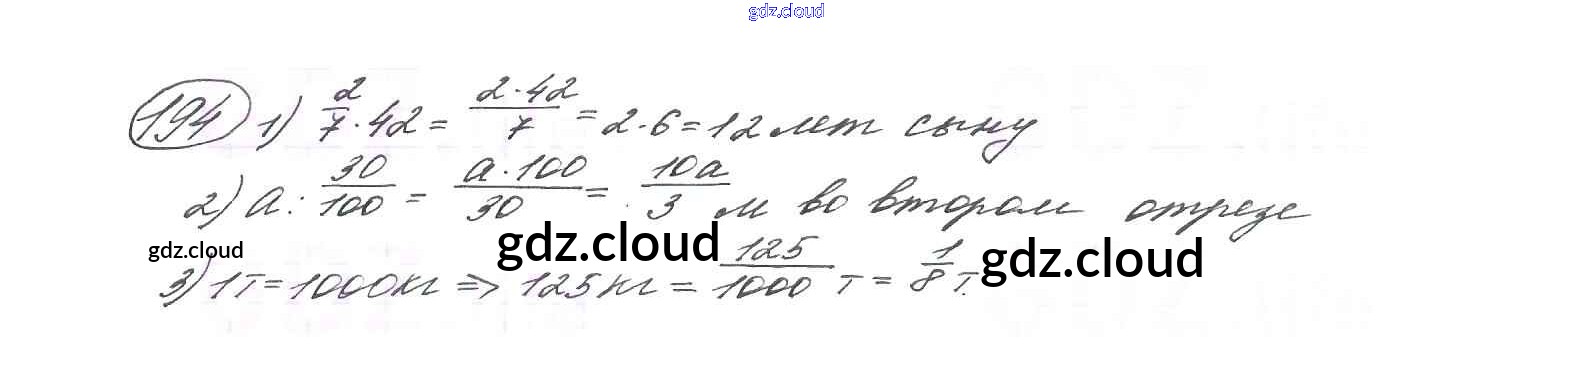 gdz.cloud
194 1) 2/7 · 42 = 2·42/7 = 2·6 = 12 лет сыну
2) a : 30/100 = a·100/30 = 10a/3 м во втором отрезе
gdz.cloud gdz.cloud gdz.cloud
3) 1т = 1000кг => 125кг = 125/1000 т = 1/8 т.